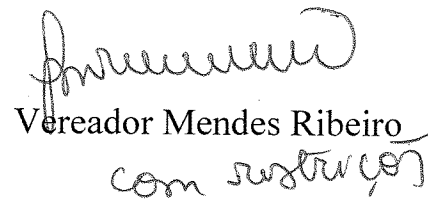 Vereador Mendes Ribeiro
com restrições